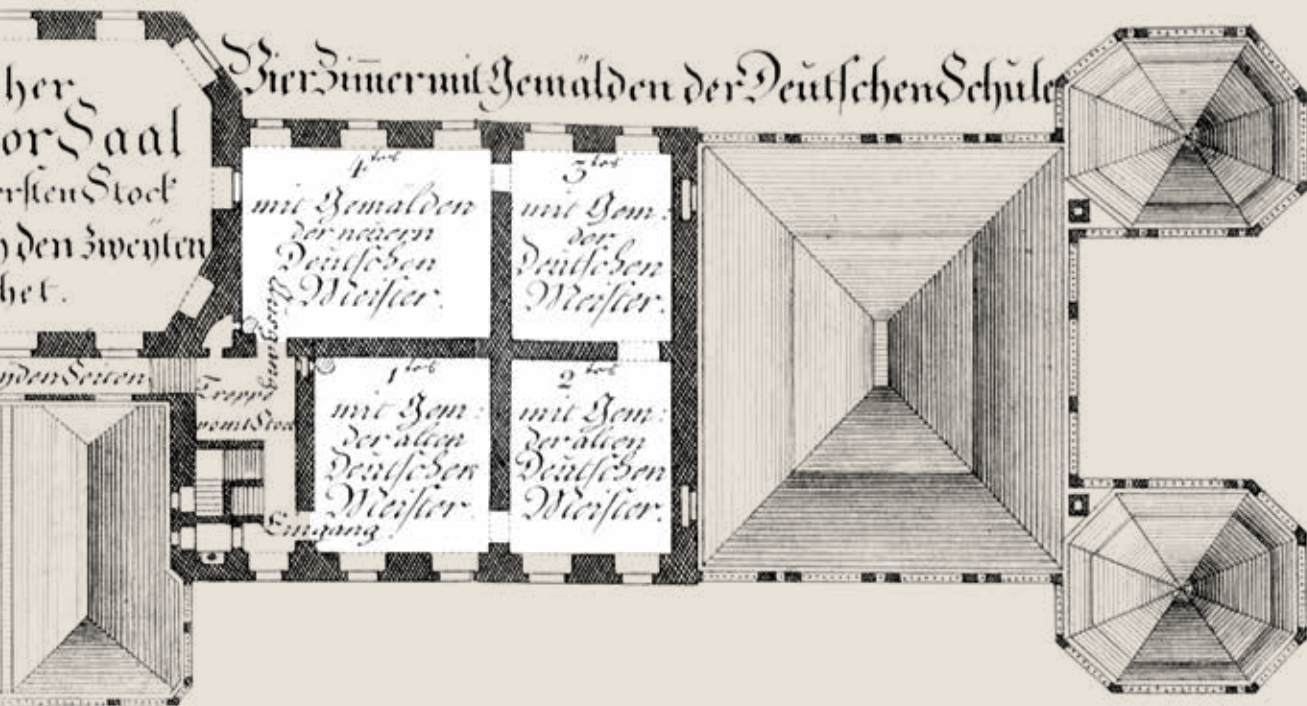 her
or Saal
ersten Stock
h den zweyten
het.
Vier Zimmer mit Gemälden der Deutschen Schule
4.tes
mit Gemälden
der neuern
Deutschen
Meister.
3tes
mit Gem:
der
Deutschen
Meister.
Ausgang
1tes
mit Gem:
der alten
Deutschen
Meister.
2tes
mit Gem:
der alten
Deutschen
Meister.
yden Seiten
Treppe
vom 1t Stock
Eingang